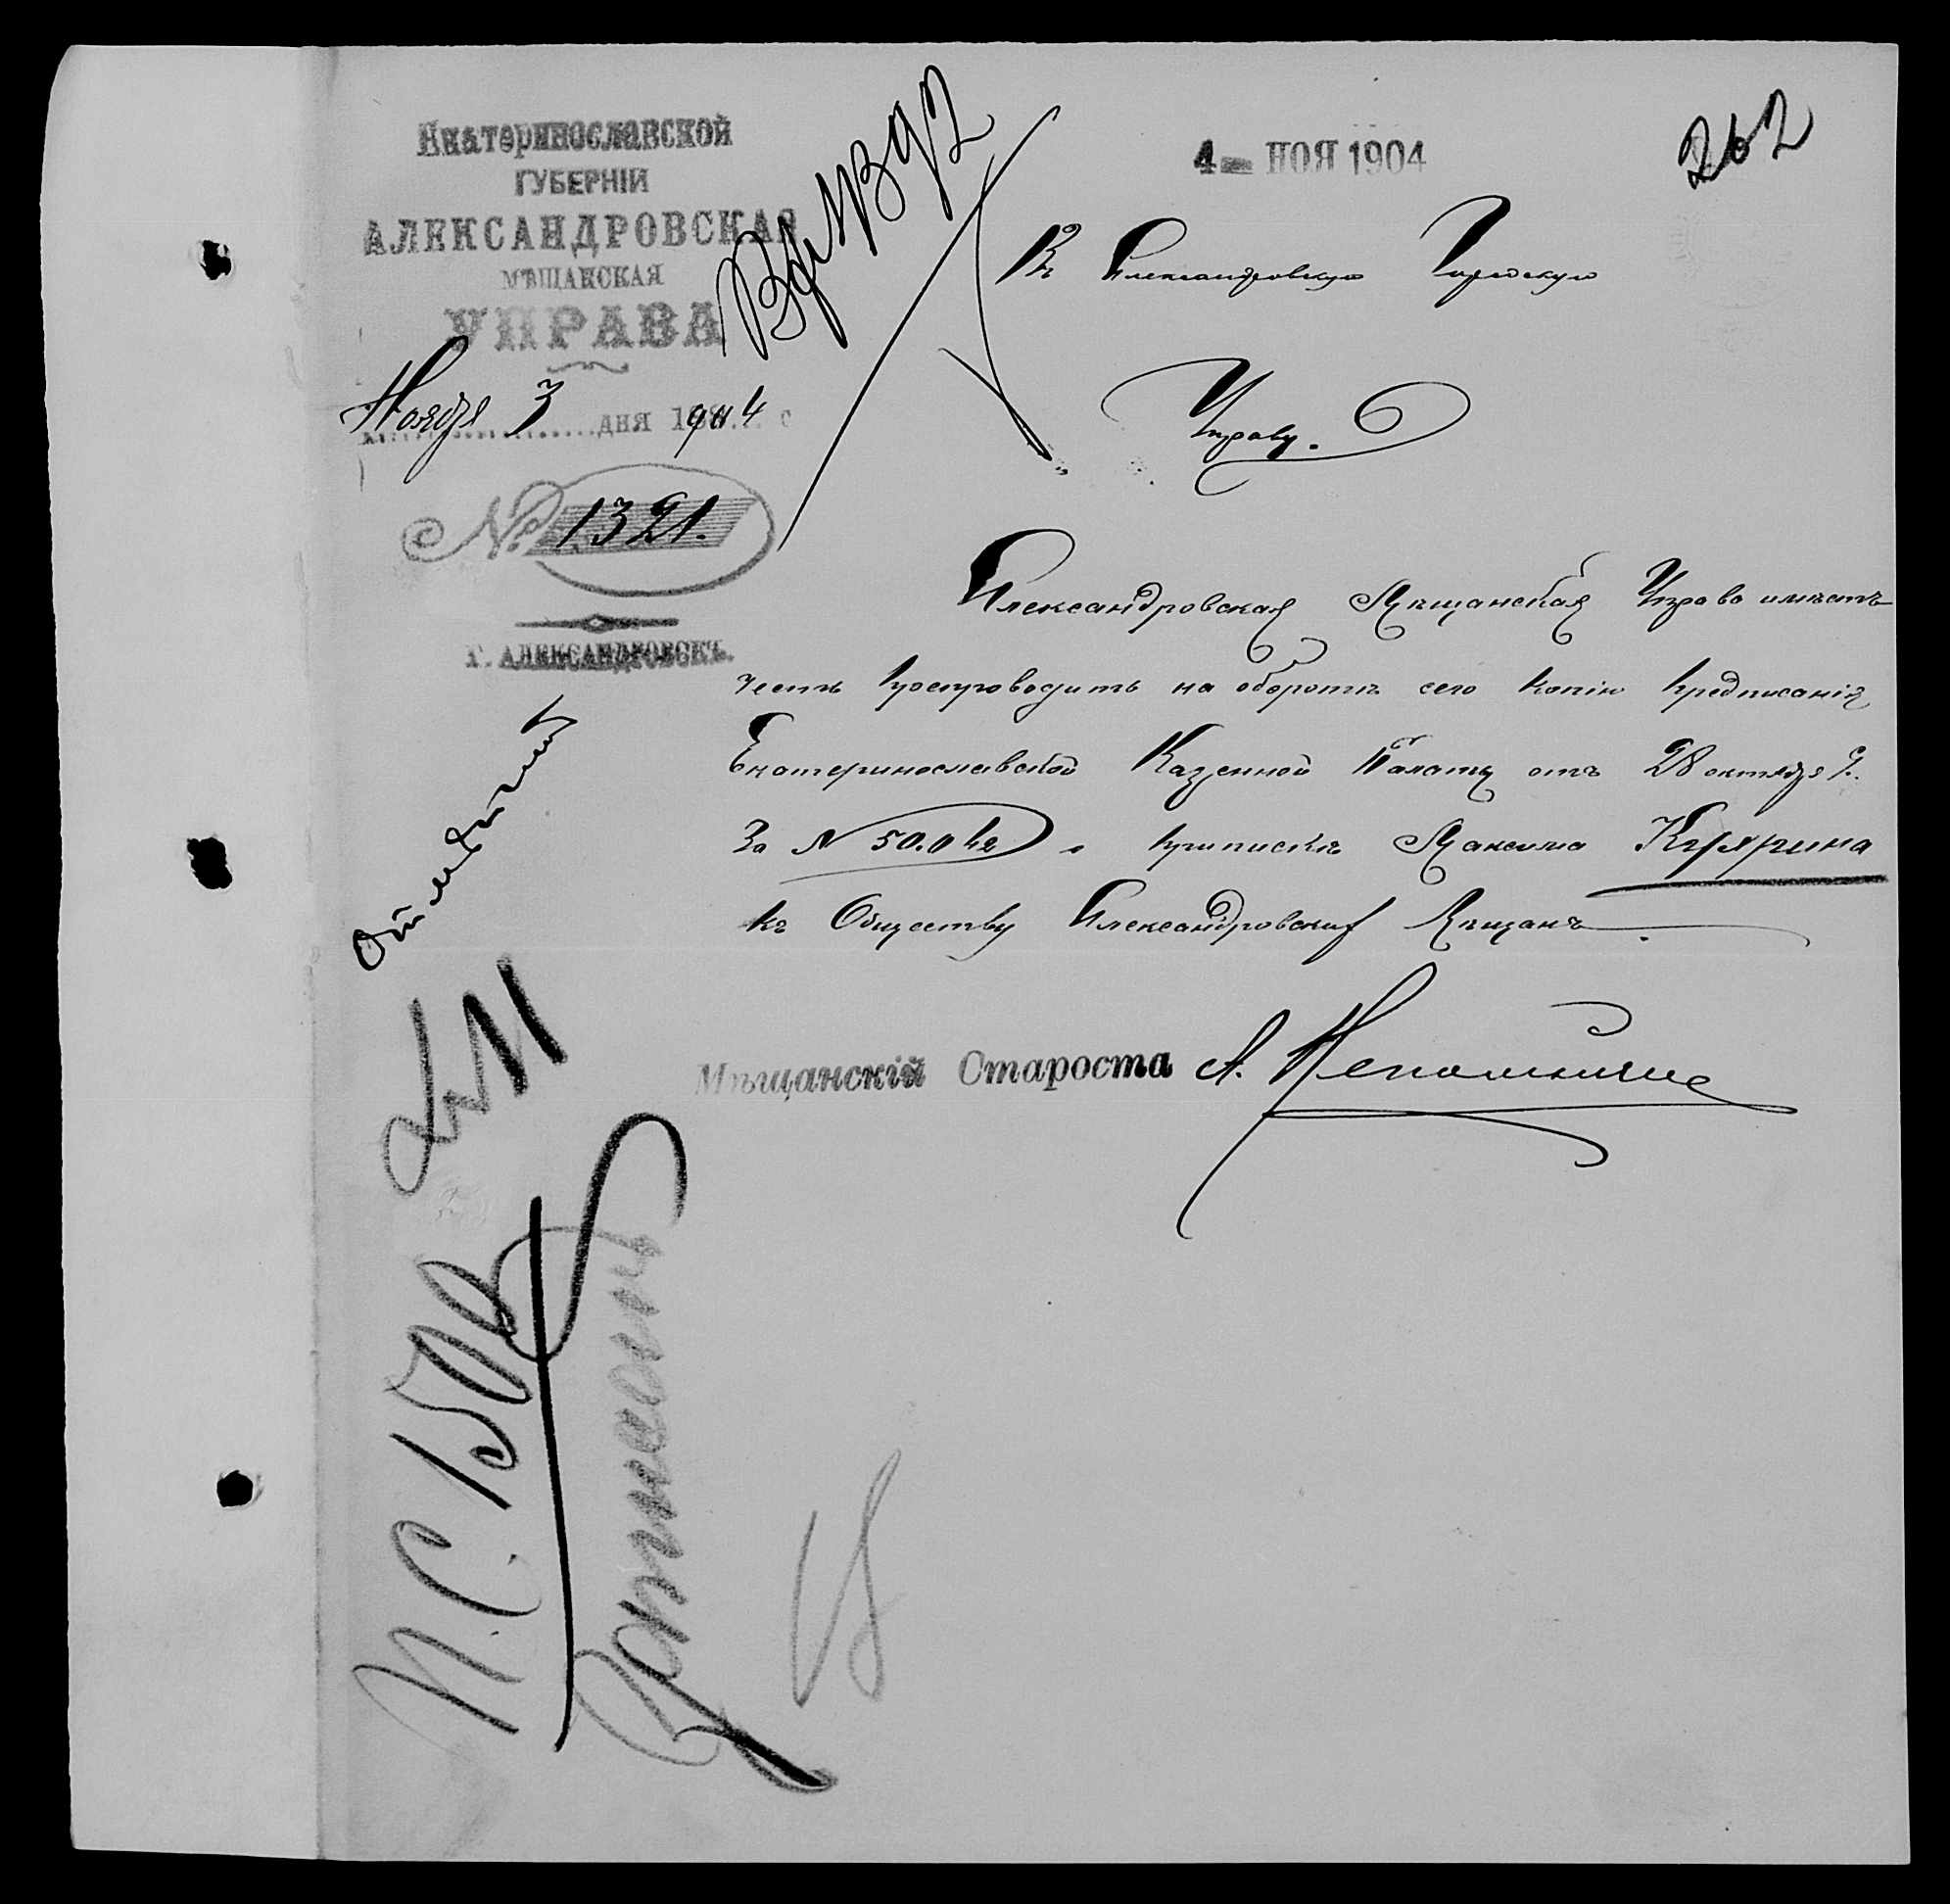 Екатеринославской
ГУБЕРНІИ
АЛЕКСАНДРОВСКАЯ
МѢЩАНСКАЯ
УПРАВА
Ноября 3 дня 1904
№ 1321.
Г. АЛЕКСАНДРОВСКЪ.
4 - НОЯ 1904
262
Въ Александровскую Городскую
Управу.
Александровская Мѣщанская Управа имѣетъ
честь препроводить на оборотѣ сего копію предписанія
Екатеринославской Казенной Палаты отъ 28 октября
За № 50.042 о припискѣ Максима
къ Обществу Александровскихъ Мѣщанъ
Мѣщанскій Староста А.